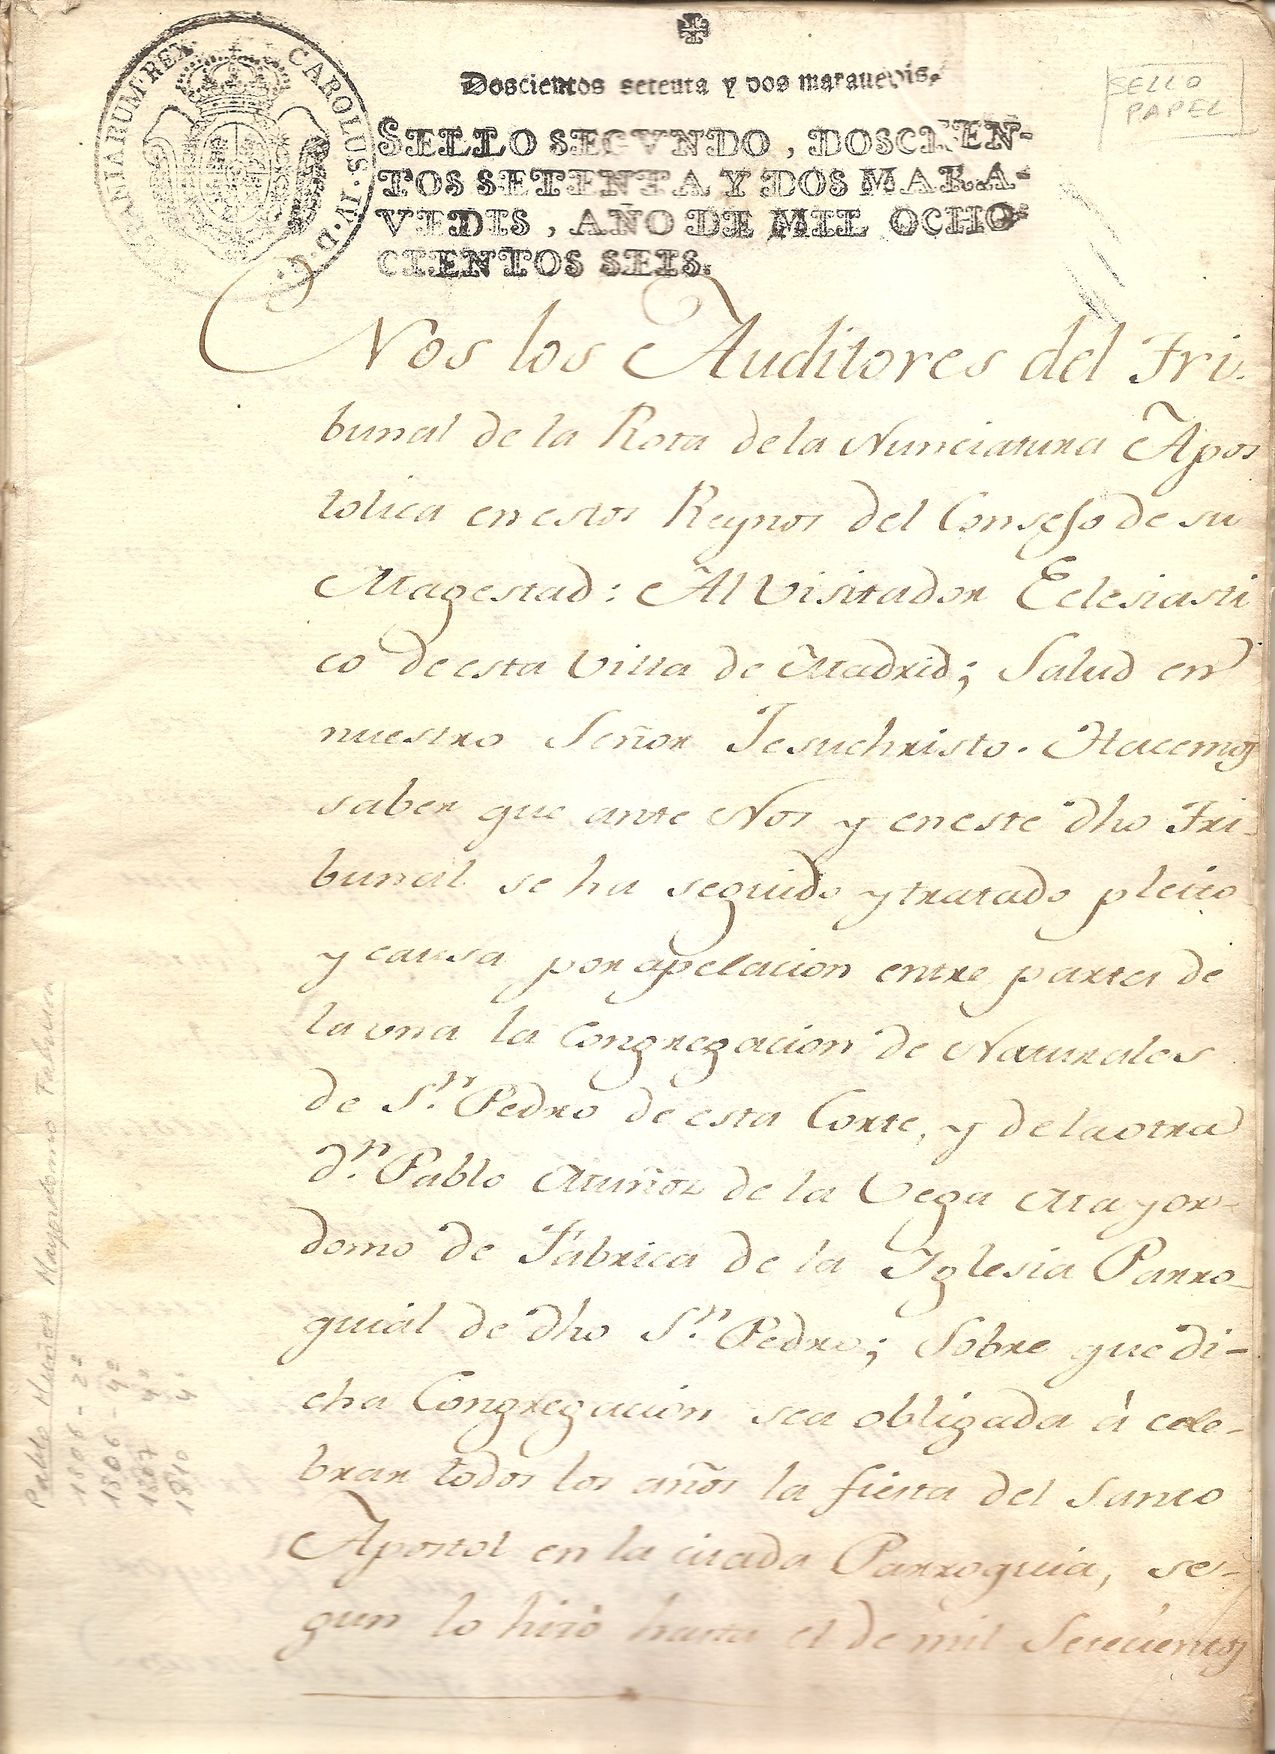 Doscientos setenta y dos maravedis.
SELLO SEGVNDO, DOSCIEN-
TOS SETENTA Y DOS MARA-
VEDIS, AÑO DE MIL OCHO-
CIENTOS SEIS.
CAROLUS·IV·D·G· HISPANIARUM·REX·
SELLO
PAPEL
Nos los Auditores del Tri-
bunal de la Rota de la Nunciatura Apos
tolica en estos Reynos del Consejo de su
Magestad: Al Visitador Eclesiasti
co de esta Villa de Madrid; Salud en
nuestro Señor Jesuchristo. Hacemos
saber que ante Nos y en este dho Tri-
bunal se ha seguido y tratado pleito
y causa por apelacion entre partes de
la una la Congregacion de Naturales
de Sn. Pedro de esta Corte, y de la otra
dn. Pablo Muñoz de la Vega Mayor-
domo de Fabrica de la Iglesia Parro-
quial de dho Sn. Pedro; Sobre que di-
cha Congregacion sea obligada à cele-
brar todos los años la fiesta del Santo
Apostol en la citada Parroquia, se-
gun lo hizo hasta el de mil Setecientos
Pablo Muñoz Mayordomo Fabrica
1806 - 2º
1806 - 4º
1807 4º
1810 4º